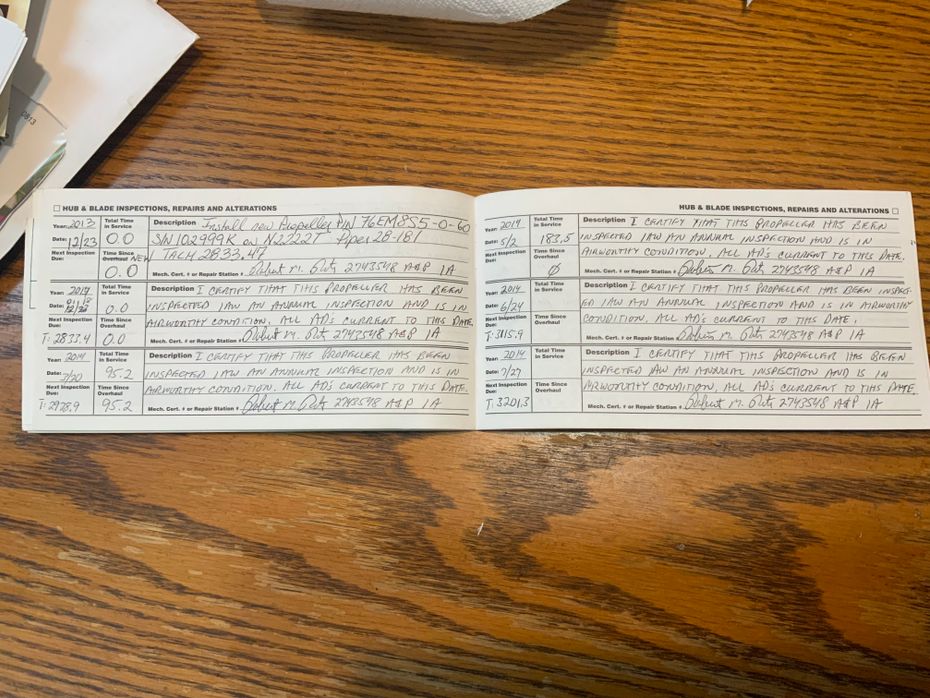 0813
HUB & BLADE INSPECTIONS, REPAIRS AND ALTERATIONS
Year: 2013 Total Time in Service 0.0 Description Install new Propeller P/N 76EM8S5-0-60
Date: 12/23 S/N 102999K on N2722T Piper 28-181
Next Inspection Due: Time Since Overhaul NEW 0.0 TACH 2833.47
Mech. Cert. # or Repair Station # 2743548 A&P IA
Year: Total Time in Service 0.0 Description I CERTIFY THAT THIS PROPELLER HAS BEEN
Date: INSPECTED IAW AN ANNUAL INSPECTION AND IS IN
Next Inspection Due: T: 2833.4 Time Since Overhaul 0.0 AIRWORTHY CONDITION. ALL AD'S CURRENT TO THIS DATE.
Mech. Cert. # or Repair Station # 2743548 A&P IA
Year: 2014 Total Time in Service 95.2 Description I CERTIFY THAT THIS PROPELLER HAS BEEN
Date: INSPECTED IAW AN ANNUAL INSPECTION AND IS IN
Next Inspection Due: T: Time Since Overhaul 95.2 AIRWORTHY CONDITION. ALL AD'S CURRENT TO THIS DATE.
Mech. Cert. # or Repair Station # 2743548 A&P IA
HUB & BLADE INSPECTIONS, REPAIRS AND ALTERATIONS
Year: 2014 Total Time in Service 183.5 Description I CERTIFY THAT THIS PROPELLER HAS BEEN
Date: 5/2 INSPECTED IAW AN ANNUAL INSPECTION AND IS IN
Next Inspection Due: Time Since Overhaul Ø AIRWORTHY CONDITION. ALL AD'S CURRENT TO THIS DATE.
Mech. Cert. # or Repair Station # 2743548 A&P IA
Year: 2014 Total Time in Service Description I CERTIFY THAT THIS PROPELLER HAS BEEN INSPECT-
Date: 6/24 ED IAW AN ANNUAL INSPECTION AND IS IN AIRWORTHY
Next Inspection Due: T: 3115.9 Time Since Overhaul CONDITION. ALL AD'S CURRENT TO THIS DATE.
Mech. Cert. # or Repair Station # 2743548 A&P IA
Year: 2014 Total Time in Service Description I CERTIFY THAT THIS PROPELLER HAS BEEN
Date: 7/27 INSPECTED IAW AN ANNUAL INSPECTION AND IS IN
Next Inspection Due: T: 3201.3 Time Since Overhaul AIRWORTHY CONDITION. ALL AD'S CURRENT TO THIS DATE.
Mech. Cert. # or Repair Station # 2743548 A&P IA